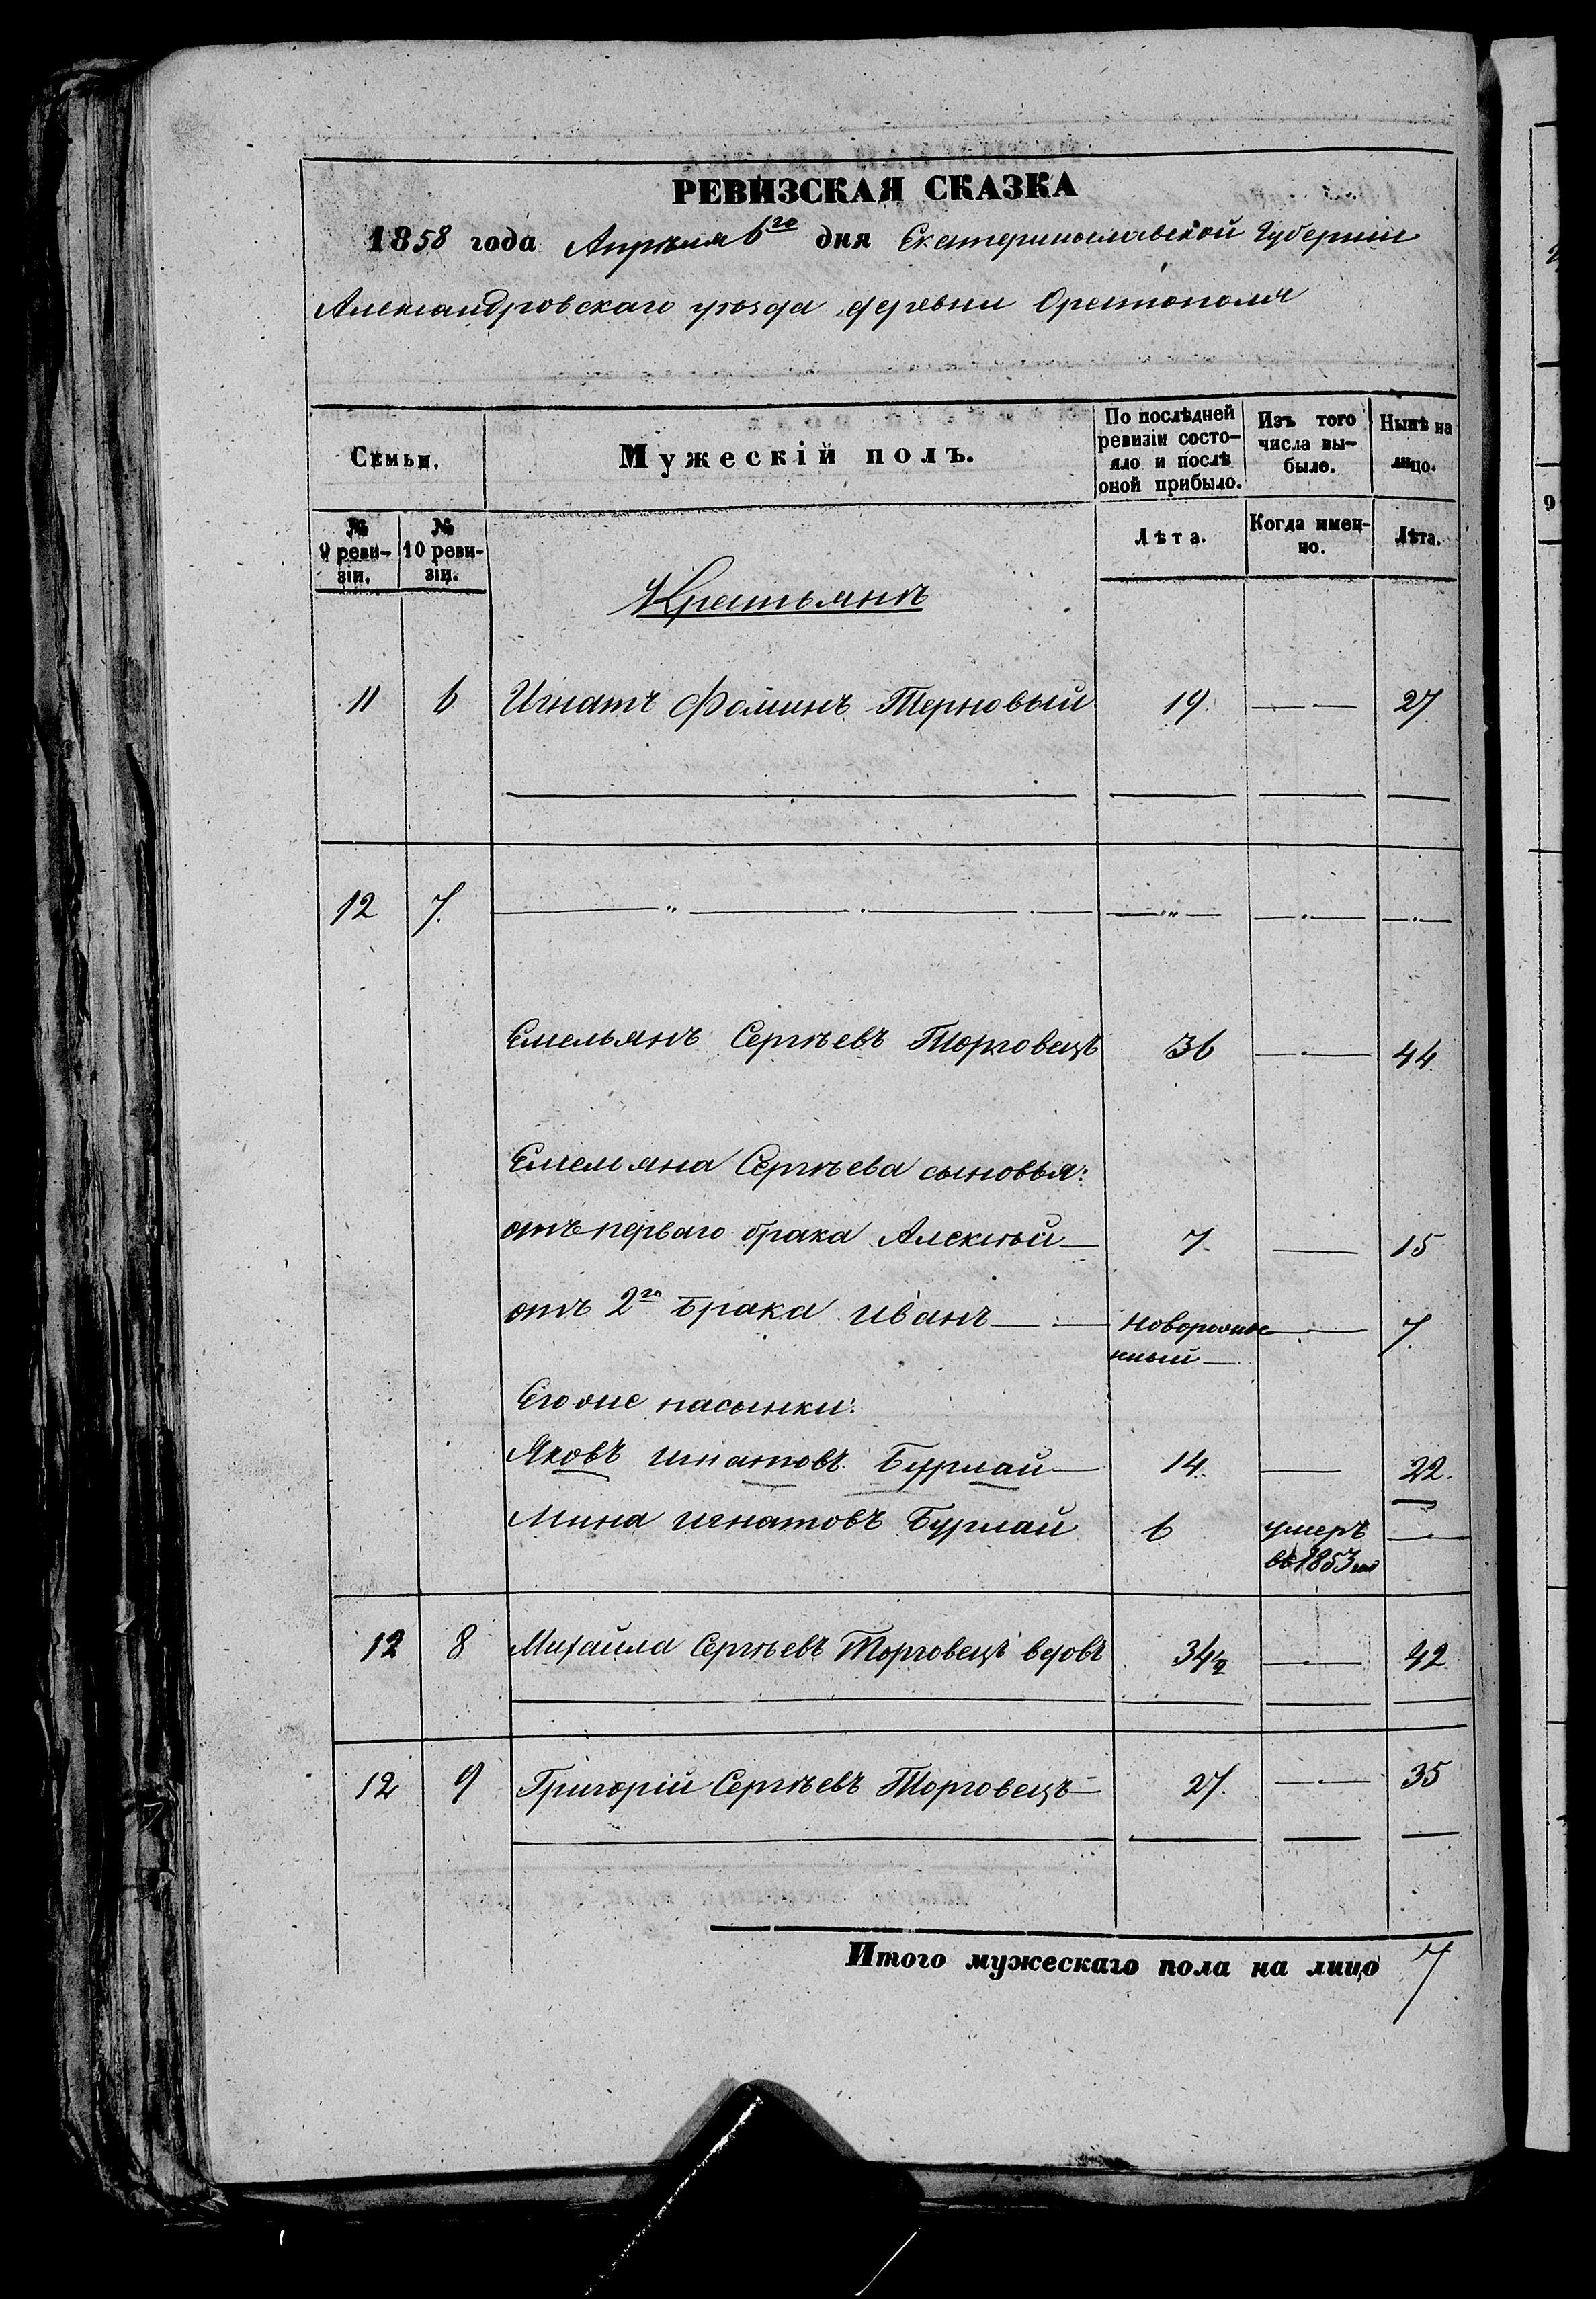 РЕВИЗСКАЯ СКАЗКА
1858 года Апрѣля 6го дня Екатеринославской Губерніи
Александровскаго уѣзда деревни Орестополя
Семьи.
Мужескій полъ.
По послѣдней ревизіи состо-яло и послѣ оной прибыло.
Изъ того числа вы-было.
Нынѣ на лицо.
№ 9 реви-зіи.
№ 10 реви-зіи.
Лѣта.
Когда имен-но.
Лѣта.
Крестьянъ
11 6 Игнатъ Фоминъ Терновый 19. — — 27
12 7.
Емельянъ Сергѣевъ Торговецъ 36 — — 44
Емельяна Сергѣева сыновья:
отъ перваго брака Алексѣй — 7 — 15
отъ 2го брака Иванъ — — новорожде — 7.
нный —
Егоже пасынки:
Яковъ Игнатовъ Бурлай — 14. — 22.
Мина Игнатовъ Бурлай 6 умеръ —
въ 1853мъ
12 8 Михаила Сергѣевъ Торговецъ вдовъ 34½ — 42
12 9 Григорій Сергѣевъ Торговецъ — 27. — — 35
Итого мужескаго пола на лицо 7
9